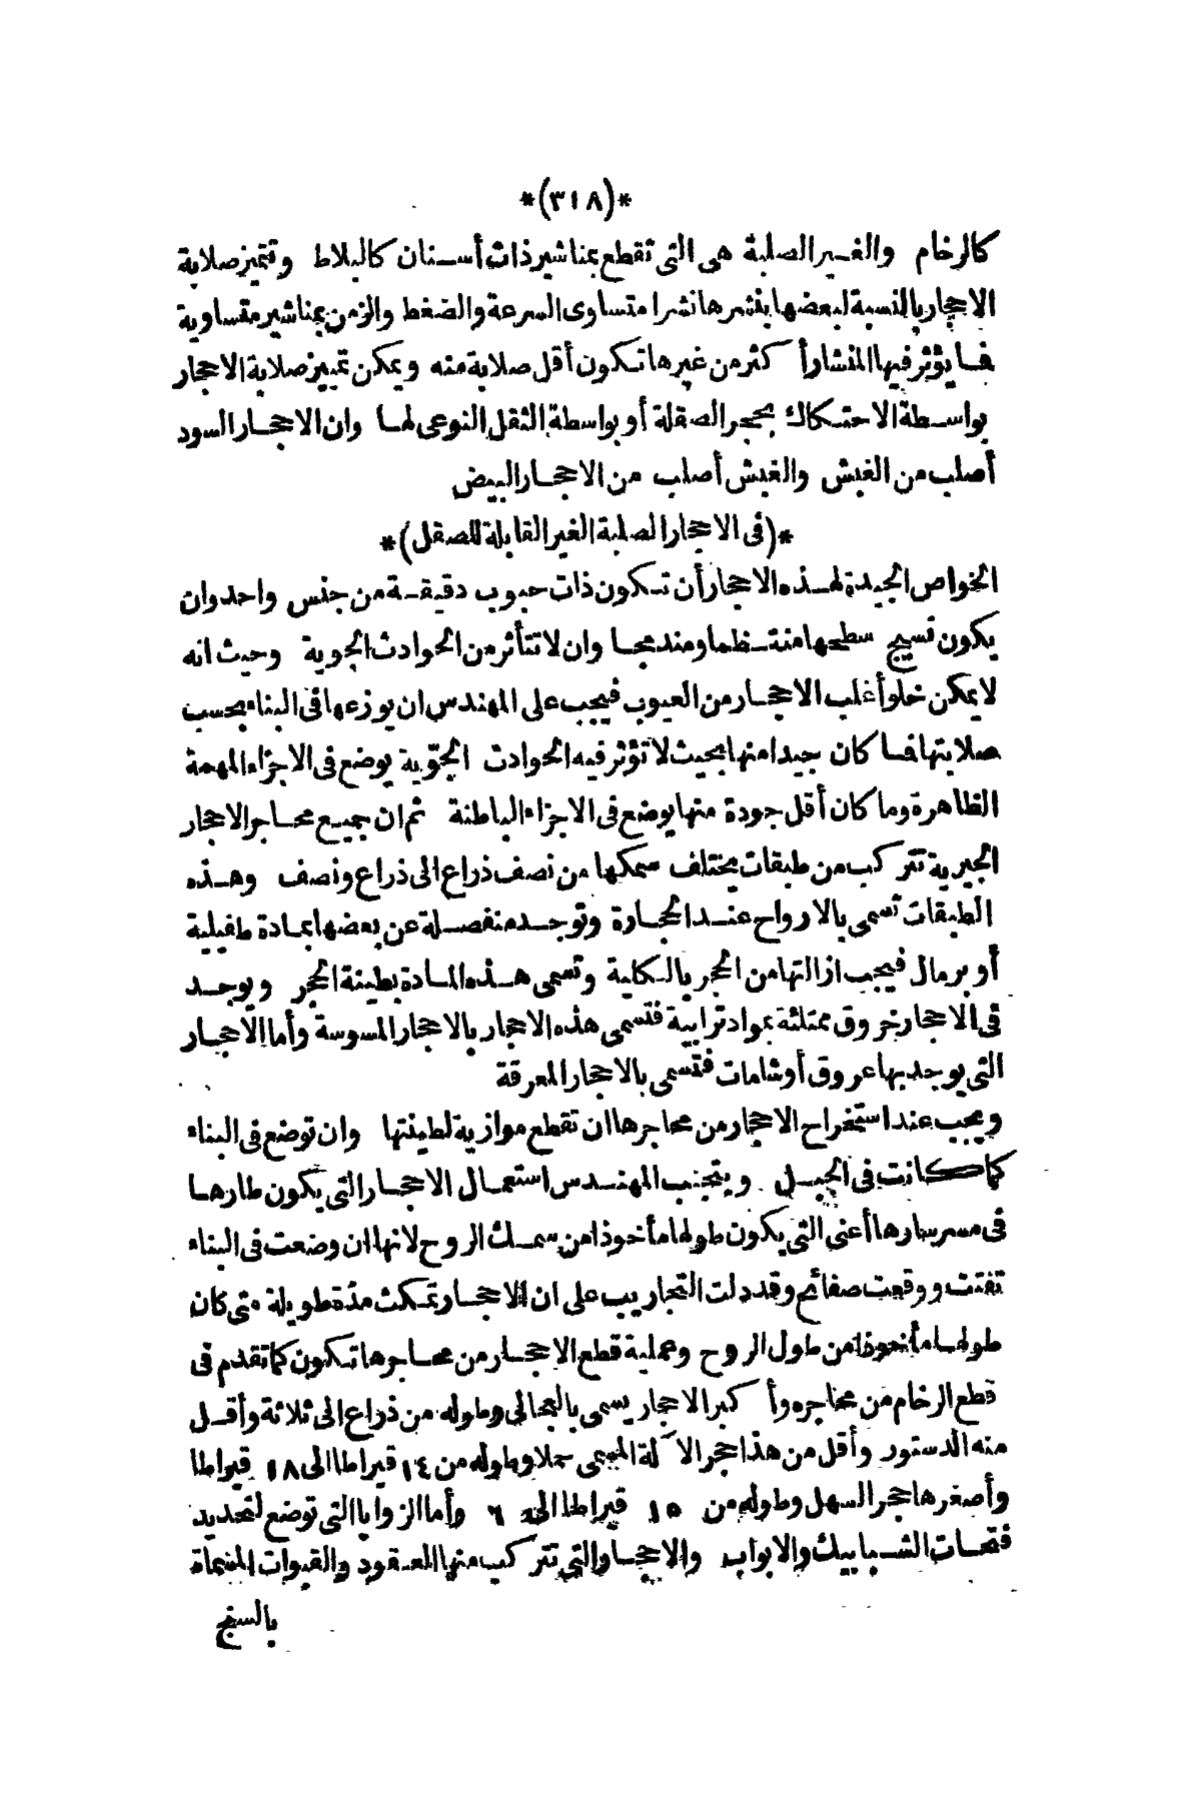 *(٣١٨)*
كالرخام والغير الصلبة هى التى تقطع بمناشير ذات أسنان كالبلاط وتتميز صلابة
الاحجار بالنسبة لبعضها بنشرها نشرا متساوى السرعة والضغط والزمن بمناشير متساوية
فما يؤثر فيها المنشار أكثر من غيرها تكون أقل صلابة منه ويمكن تمييز صلابة الاحجار
بواسطة الاحتكاك بحجر الصقلة أو بواسطة الثقل النوعى لهما وان الاحجار السود
أصلب من الغبش والغبش أصلب من الاحجار البيض
*(فى الاحجار الصلبة الغير القابلة للصقل)*
الخواص الجيدة لهذه الاحجار أن تكون ذات حبوب دقيقة من جنس واحد وان
يكون نسيج سطحها منتظما ومندمجا وان لا تتأثر من الحوادث الجوية وحيث انه
لا يمكن خلو أغلب الاحجار من العيوب فيجب على المهندس ان يوزعها فى البناء بحسب
صلابتها فما كان جيدا منها بحيث لا تؤثر فيه الحوادث الجوّية يوضع فى الاجزاء المهمة
الظاهرة وما كان أقل جودة منها يوضع فى الاجزاء الباطنة ثم ان جميع محاجر الاحجار
الجيرية تتركب من طبقات يختلف سمكها من نصف ذراع الى ذراع ونصف وهذه
الطبقات تسمى بالارواح عند الحجارة وتوجد منفصلة عن بعضها بمادة طفيلية
أو برمال فيجب ازالتها من الحجر بالكلية وتسمى هذه المادة بطينة الحجر ويوجد
فى الاحجار خروق ممتلئة بمواد ترابية فتسمى هذه الاحجار بالاحجار المسوسة وأما الاحجار
التى يوجد بها عروق أو شامات فتسمى بالاحجار المعرقة
ويجب عند استخراج الاحجار من محاجرها ان تقطع موازية لطينتها وان توضع فى البناء
كما كانت فى الجبل ويتجنب المهندس استعمال الاحجار التى يكون طارها
فى مسر سارها أعنى التى يكون طولها مأخوذا من سمك الروح لانها ان وضعت فى البناء
تفتت ووقعت صفائح وقد دلت التجاريب على ان الاحجار تمكث مدّة طويلة متى كان
طولها مأخوذا من طول الروح وعملية قطع الاحجار من محاجرها تكون كما تقدم فى
قطع الرخام من محاجره وأكبر الاحجار يسمى بالعجالى وطوله من ذراع الى ثلاثة وأقل
منه الدستور وأقل من هذا حجر الآلة المسمى حملا وطوله من ١٤ قيراطا الى ١٨ قيراطا
وأصغرها حجر السهل وطوله من ١٥ قيراطا الى ٦ وأما الزوايا التى توضع لتحديد
فتحات الشبابيك والابواب والاحجار التى تتركب منها العقود والقبوات المسماة
بالسنج